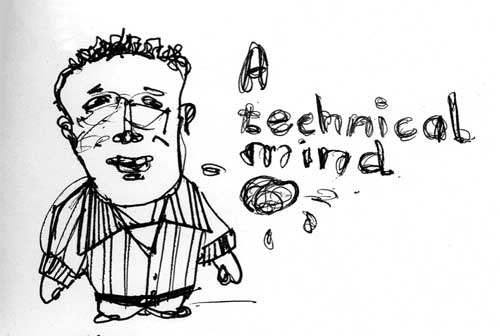 A
technical
mind